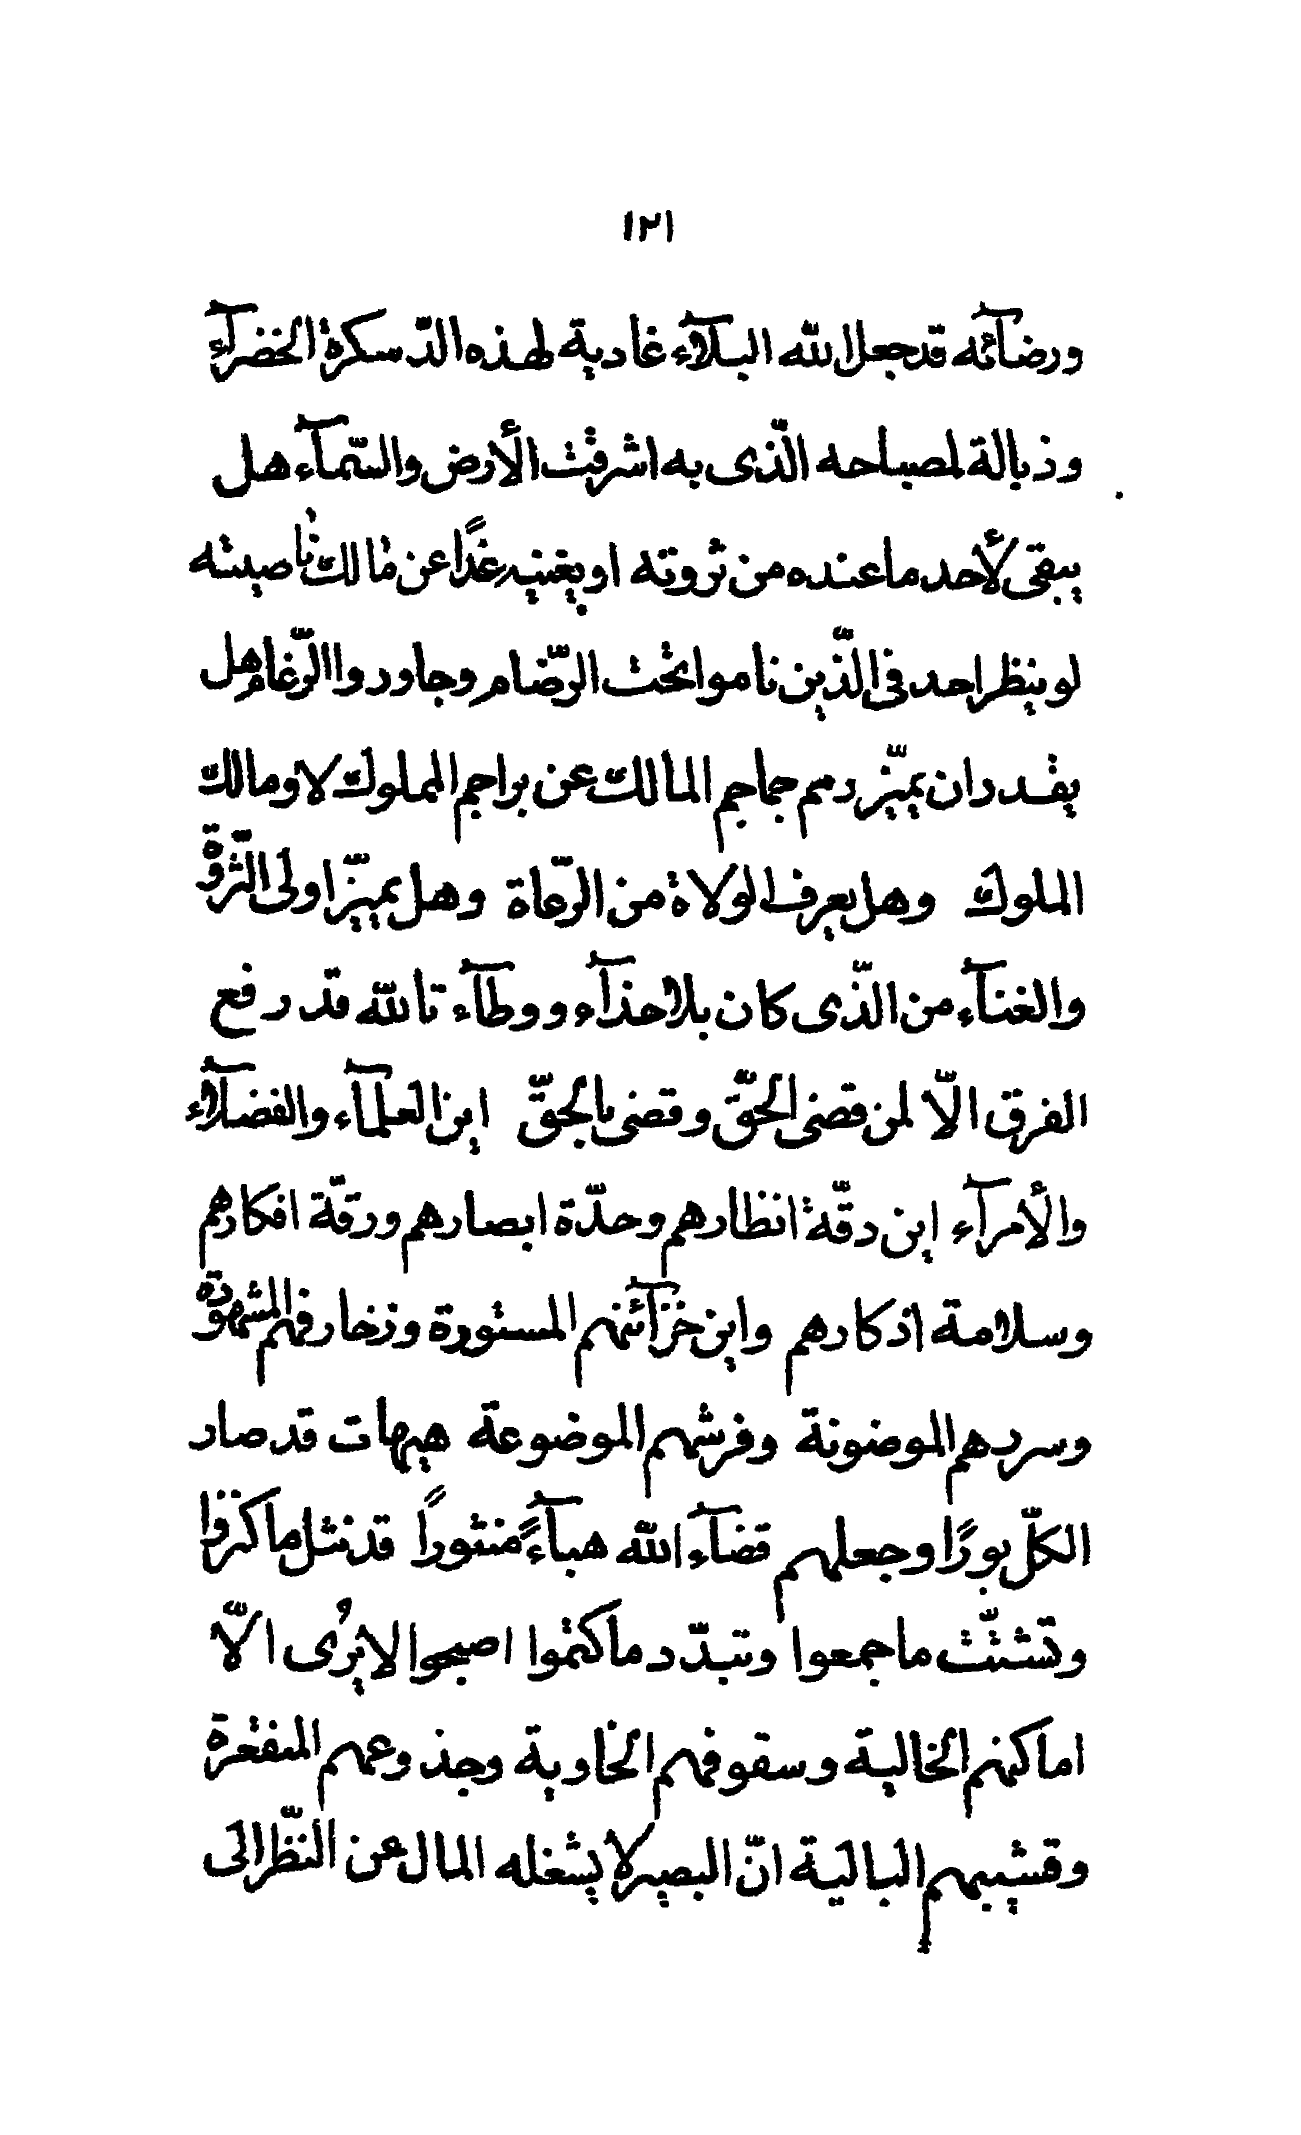 ١٢١
ورضائه قد جعل الله البلآء غادية لهذه الدّسكرة الخضرآء
وذبالة لمصباحه الّذى به اشرقت الأرض والسّمآء هل
يبقى لأحد ما عنده من ثروته او يغنيه غدًا عن مالك ناصيته
لو ينظر احد فى الّذين ناموا تحت الرّضام وجاوروا الرّغام هل
يقدر ان يميّز رمم جماجم المالك عن براجم المملوك لا ومالك
الملوك وهل يعرف الولاة من الرّعاة وهل يميّز اولى الثّروة
والغنآء من الّذى كان بلا حذآء ووطآء تالله قد رفع
الفرق الّا لمن قضى الحقّ وقضى بالحقّ اين العلمآء والفضلآء
والأمرآء اين دقّة انظارهم وحدّة ابصارهم ورقّة افكارهم
وسلامة اذكارهم واين خزآئنهم المستورة وزخارفهم المشهودة
وسررهم الموضونة وفرشهم الموضوعة هيهات قد صار
الكلّ بورًا وجعلهم قضآء الله هبآءً منثورًا قد نثل ما كنزوا
وتشتّت ما جمعوا وتبدّد ما كتموا اصبحوا لا يرُى الّا
اماكنهم الخالية وسقوفهم الخاوية وجذوعهم المنقعرة
وقشيبهم البالية انّ البصير لا يشغله المال عن النّظر الى